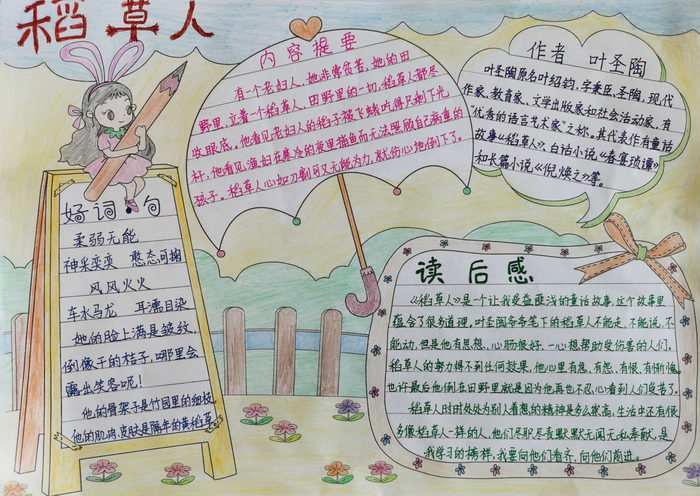 稻草人
内容提要
有一个老妇人,她非常贫苦,她的田
野里,立着一个稻草人,田野里的一切,稻草人都尽
收眼底。他看见老妇人的稻子被飞蛾吃得只剩下光
杆,他看见渔妇在寒冷的夜里捕鱼而无法照顾自己病重的
孩子。稻草人心如刀割可又无能为力,就伤心地倒下了。
作者 叶圣陶
叶圣陶原名叶绍钧,字秉臣、圣陶,现代
作家、教育家、文学出版家和社会活动家,有
优秀的语言艺术家”之称。其代表作有童话
故事《稻草人》、白话小说《春宴琐谭》
和长篇小说《倪焕之》等。
好词 句
柔弱无能
神采奕奕 憨态可掬
风风火火
车水马龙 耳濡目染
她的脸上满是皱纹
倒像干的桔子,哪里会
露出笑容呢!
他的骨架子是竹园里的细枝
他的肌肉、皮肤是隔年的黄稻草
读后感
《稻草人》是个让我受益匪浅的童话故事,这个故事里
蕴含了很多道理,叶圣陶爷爷笔下的稻草人不能走、不能说、不
能动,但是他有思想、心肠很好,一心想帮助受伤害的人们,
稻草人的努力得不到任何效果,他心里有急,有怨,有恨,有惭愧,
也许最后他倒在田野里就是因为他再也不忍心看到人们受苦了。
稻草人时时处处为别人着想的精神是多么崇高,生活中还有很
多像稻草人一样的人,他们尽职尽责默默无闻无私奉献,是
我学习的榜样,我要向他们看齐,向他们前进。